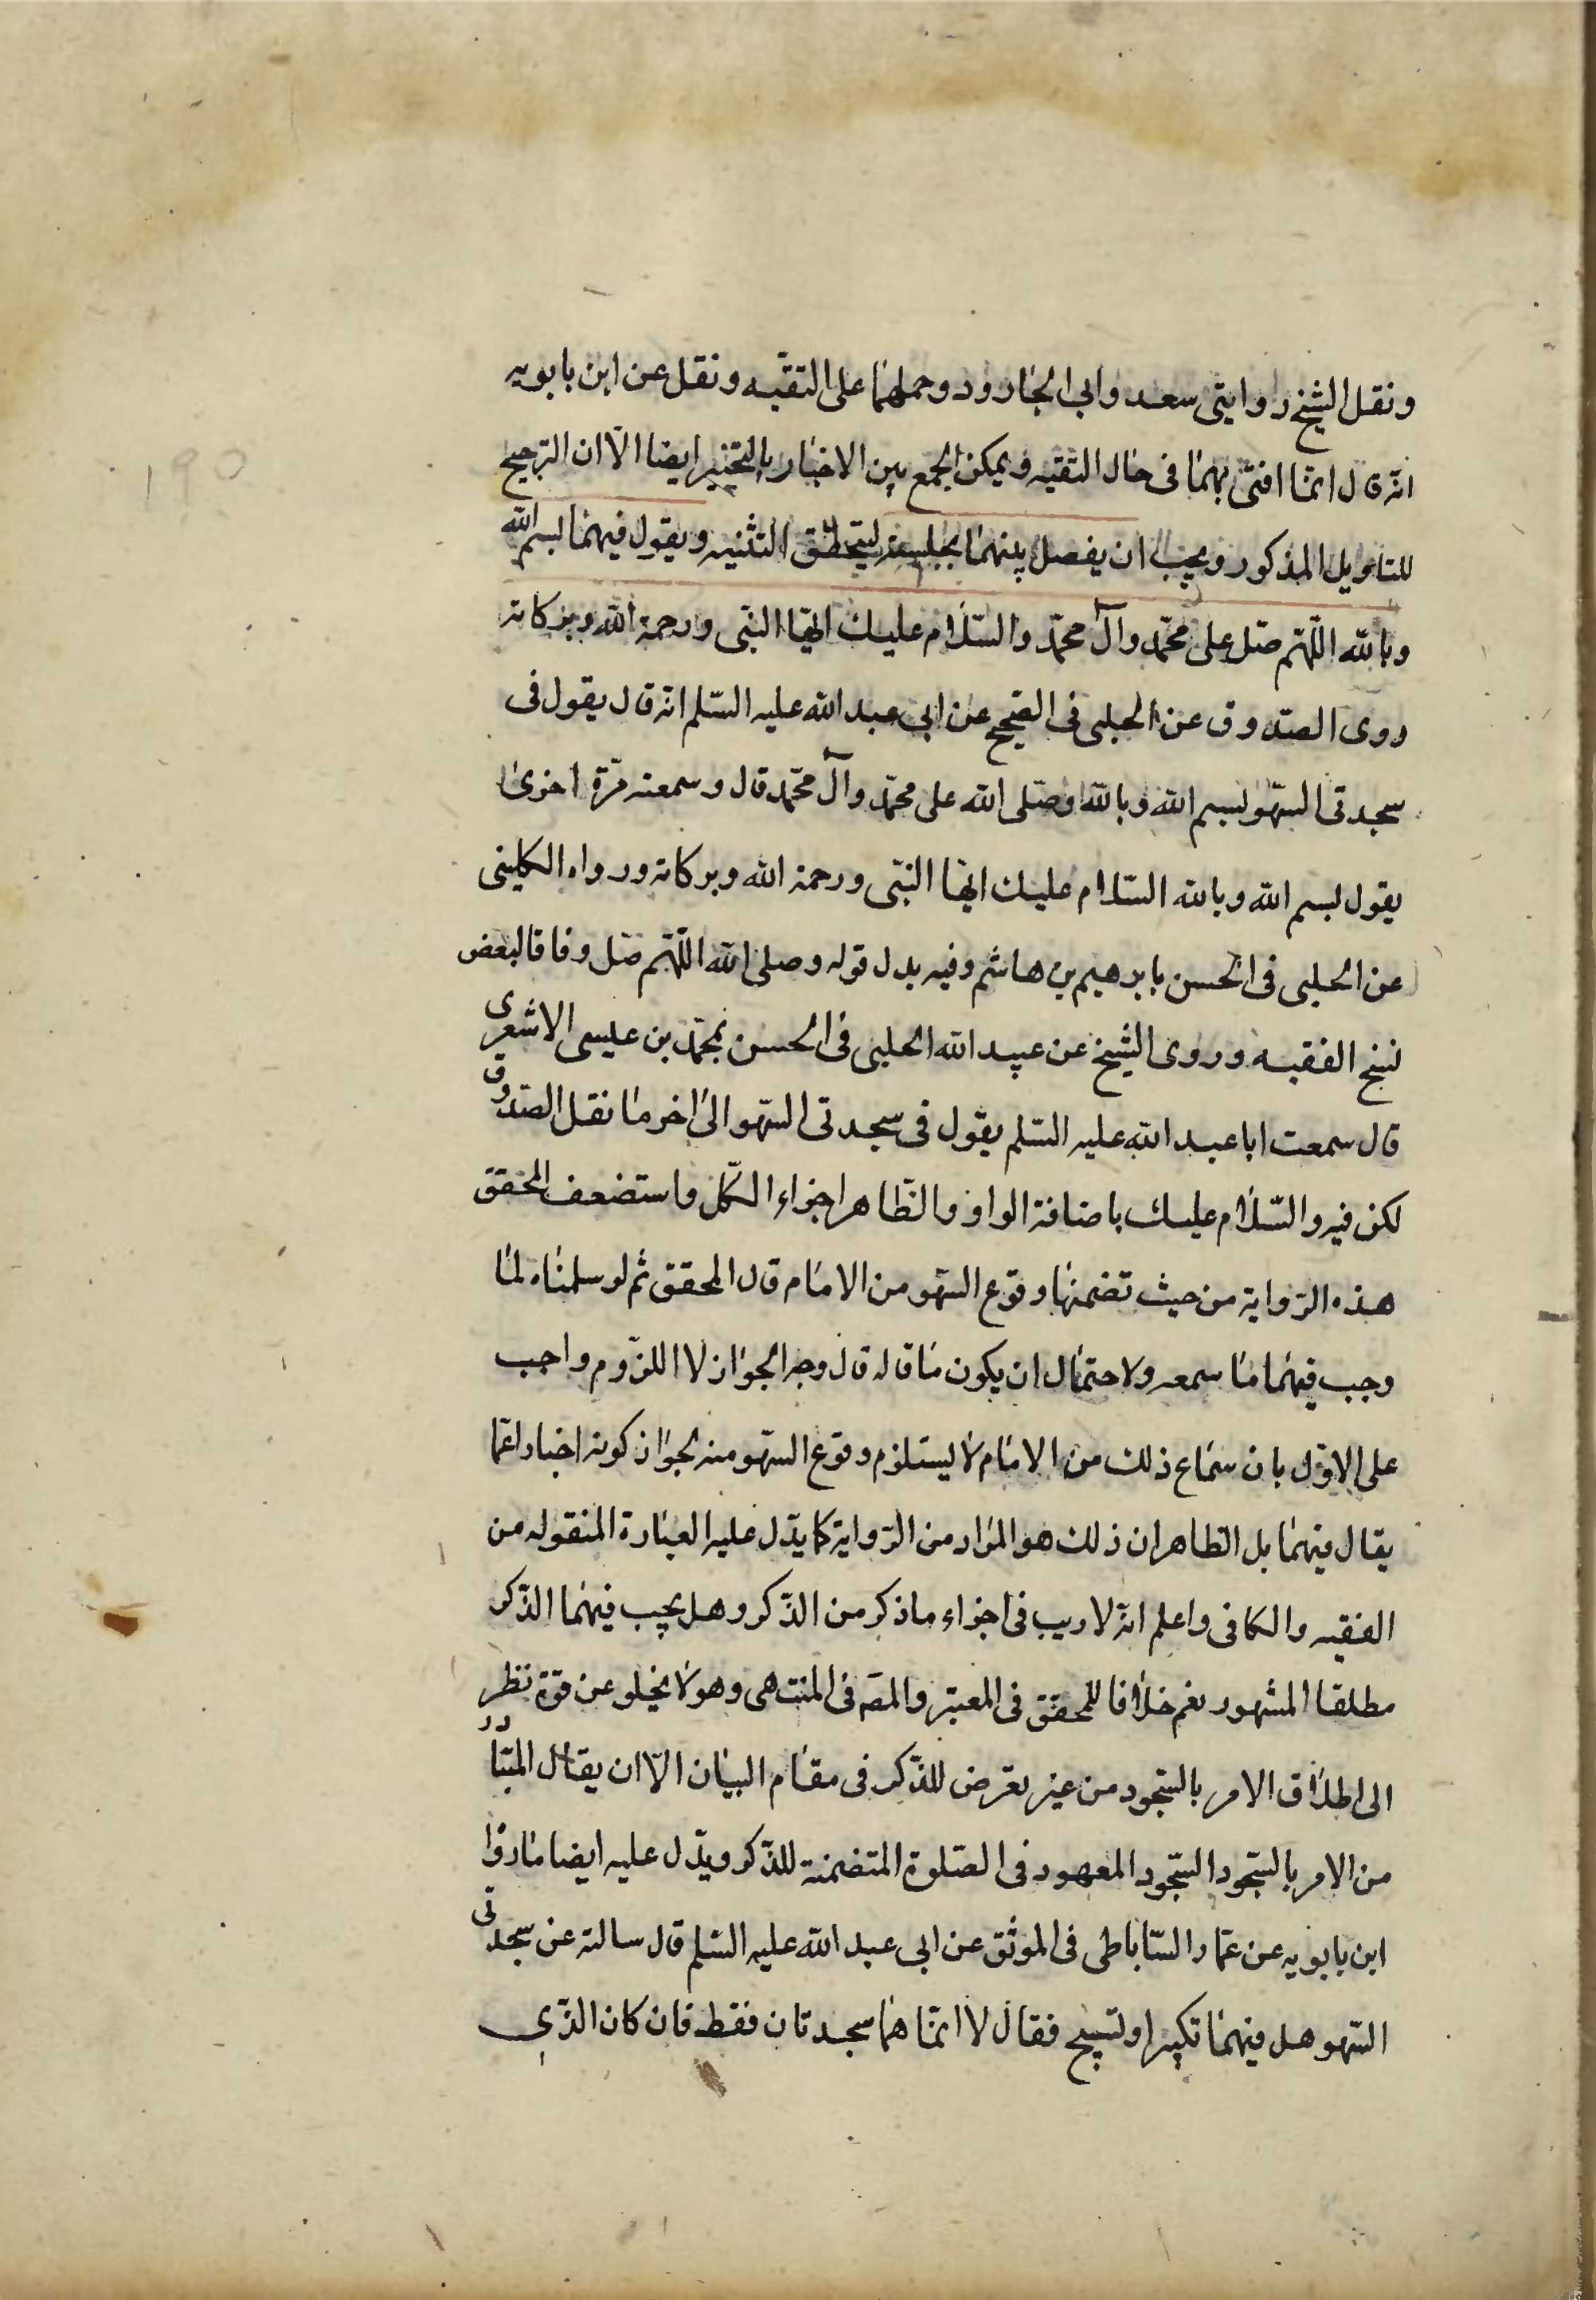 ونقل الشيخ روايتى سعد وابى الجارود وحملهما على التقيه ونقل عن ابن بابويه
انه قال انما افتى بهما فى حال التقيه ويمكن الجمع بين الاخبار بالتخيير ايضا الّا ان الترجيح
للتاويل المذكور ويجب ان يفصل بينهما بجلسة ليتحقق التثنيه ويقول فيهما بسم الله
وبالله اللّهم صلّ على محمّد وآل محمّد والسّلام عليك ايّها النبّى ورحمة الله وبركاته
روى الصدوق عن الحلبى فى الصّحيح عن ابى عبد الله عليه السّلم انه قال يقول فى
سجدتى السّهو بسم الله وبالله وصلّى الله على محمّد وآل محمّد قال وسمعته مرّة اخرى
يقول بسم الله وبالله السّلام عليك ايها النبّى ورحمة الله وبركاته ورواه الكلينى
عن الحلبى فى الحسن بابرهيم بن هاشم وفيه بدل قوله وصلى الله اللّهم صلّ وفاقا لبعض
نسخ الفقيه وروى الشيخ عن عبيد الله الحلبى فى الحسن بمحمّد بن عيسى الاشعرى
قال سمعت ابا عبد الله عليه السّلم يقول فى سجدتى السّهو الى اخر ما نقل الصّدوق
لكن فيه والسّلام عليك باضافة الواو والظّاهر اجزاء الكلّ واستضعف المحقق
هذه الرّواية من حيث تضمنها وقوع السّهو من الامام قال المحقق ثم لو سلمناه لما
وجب فيهما ما سمعه ولاحتمال ان يكون ما قاله قال وجه الجواز لا اللزّوم واجب
على الاوّل بان سماع ذلك من الامام لا يستلزم وقوع السّهو منه لجواز كونه اخبارا عمّا
يقال فيهما بل الظاهر ان ذلك هو المراد من الرّواية كما يدّل عليه العبارة المنقوله من
الفقيه والكافى واعلم انه لا ريب فى اجزاء ما ذكر من الذّكر وهل يجب فيهما الذّكر
مطلقا المشهور نعم خلافا للمحقق فى المعتبر والمصه فى المنتهى وهو لا يخلو عن قوّة نظر
الى اطلاق الامر بالسّجود من غير تعرّض للذّكر فى مقام البيان الّا ان يقال المتبادر
من الامر بالسّجود السّجود المعهود فى الصّلوة المتضمنة للذّكر ويدّل عليه ايضا ما رواه
ابن بابويه عن عمّار السّاباطى فى الموثق عن ابى عبد الله عليه السّلم قال سالته عن سجدتى
السّهو هل فيهما تكبير او تسبيح فقال لا انّما هما سجدتان فقط فان كان الذّى